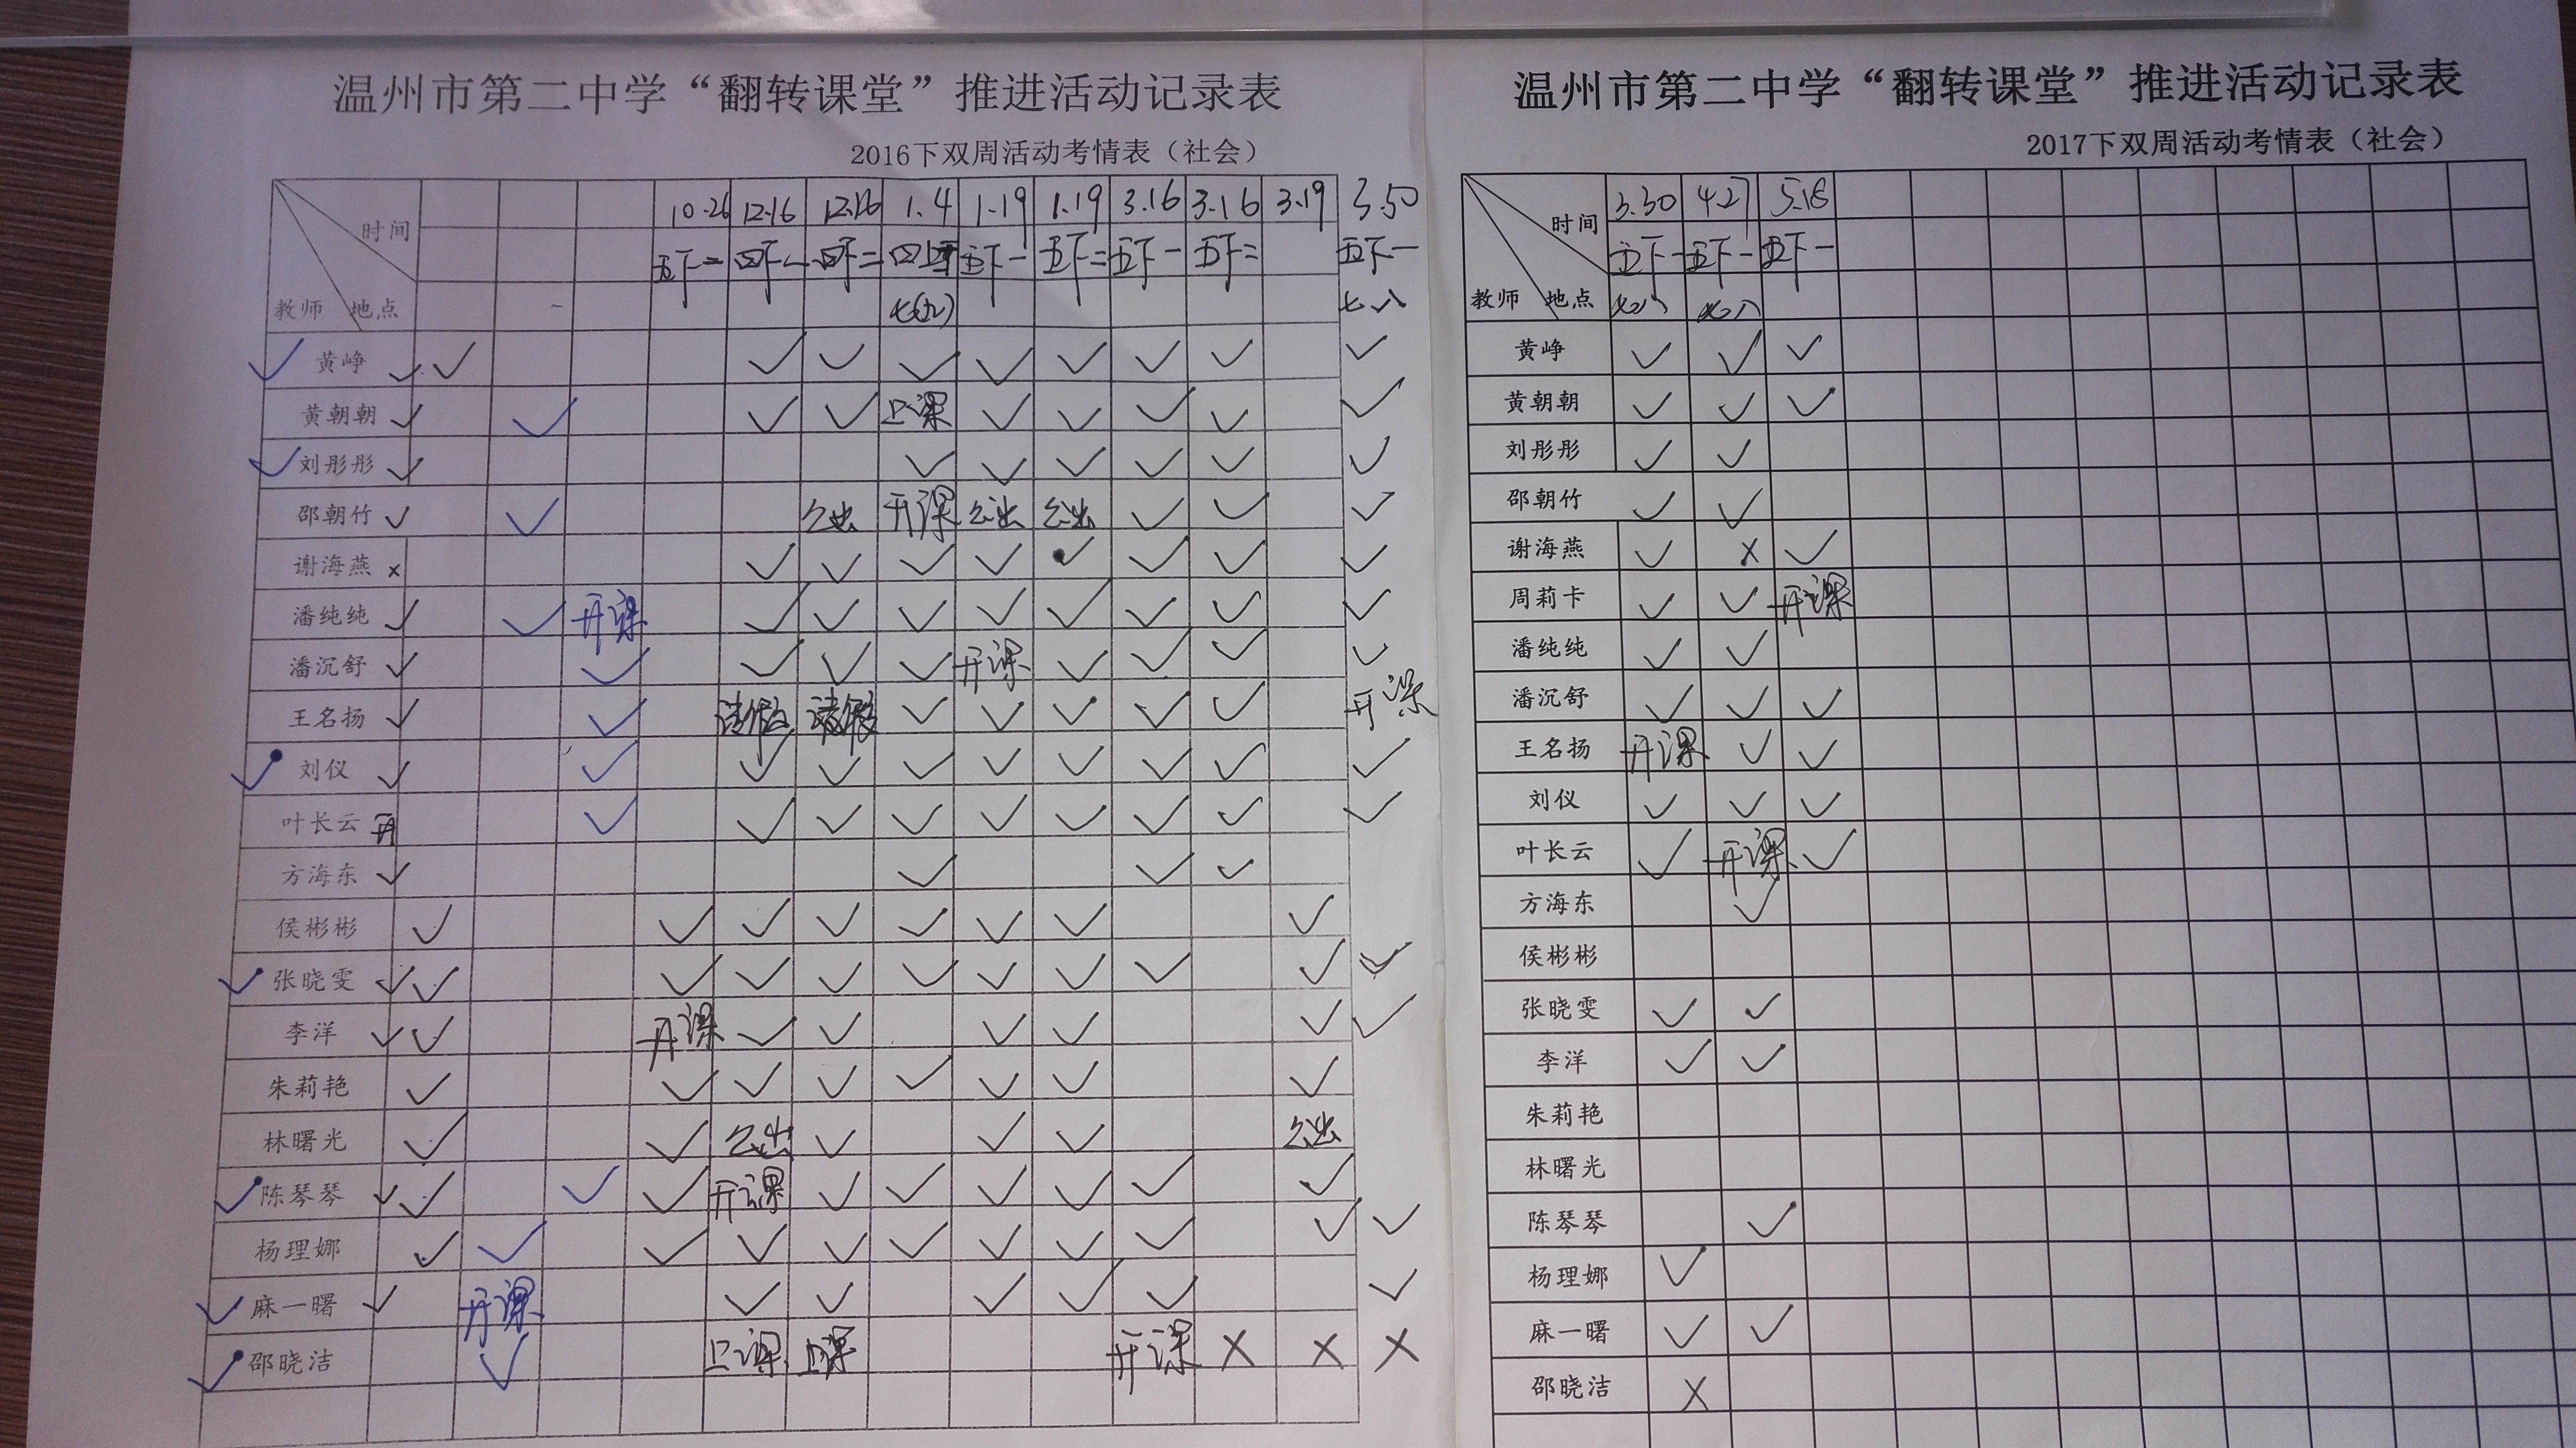 温州市第二中学“翻转课堂”推进活动记录表
2016下双周活动考情表（社会）
时间 10.26 12.16 12.16 1.4 1.19 1.19 3.16 3.16 3.19 3.30
五下二 四下一 四下二 五下一 五下二 五下一 五下二 五下一
教师 地点 七八
✓ 黄峥 ✓ ✓ ✓ ✓ ✓ ✓ ✓ ✓ ✓ ✓
黄朝朝 ✓ ✓ ✓ ✓ 上课 ✓ ✓ ✓ ✓ ✓
✓ 刘彤彤 ✓ ✓ ✓ ✓ ✓ ✓ ✓
邵朝竹 ✓ ✓ 公出 开课 公出 公出 ✓ ✓ ✓
谢海燕 × ✓ ✓ ✓ ✓ ✓ ✓ ✓ ✓
潘纯纯 ✓ ✓ 开课 ✓ ✓ ✓ ✓ ✓ ✓ ✓ ✓
潘沉舒 ✓ ✓ ✓ ✓ ✓ 开课 ✓ ✓ ✓ ✓
王名扬 ✓ ✓ 请假 请假 ✓ ✓ ✓ ✓ ✓ 开课
✓ 刘仪 ✓ ✓ ✓ ✓ ✓ ✓ ✓ ✓ ✓ ✓
叶长云 开 ✓ ✓ ✓ ✓ ✓ ✓ ✓ ✓ ✓
方海东 ✓ ✓ ✓ ✓
侯彬彬 ✓ ✓ ✓ ✓ ✓ ✓ ✓ ✓
✓ 张晓雯 ✓ ✓ ✓ ✓ ✓ ✓ ✓ ✓ ✓ ✓ ✓
李洋 ✓ ✓ 开课 ✓ ✓ ✓ ✓ ✓ ✓
朱莉艳 ✓ ✓ ✓ ✓ ✓ ✓ ✓ ✓
林曙光 ✓ ✓ 公出 ✓ ✓ ✓ 公出
✓ 陈琴琴 ✓ ✓ ✓ ✓ 开课 ✓ ✓ ✓ ✓ ✓ ✓
杨理娜 ✓ ✓ ✓ ✓ ✓ ✓ ✓ ✓ ✓ ✓ ✓
✓ 麻一曙 ✓ 开课 ✓ ✓ ✓ ✓ ✓ ✓
✓ 邵晓洁 ✓ 上课 上课 开课 × × ×
温州市第二中学“翻转课堂”推进活动记录表
2017下双周活动考情表（社会）
时间 3.30 4.27 5.18
五下一 五下一 五下一
教师 地点
黄峥 ✓ ✓ ✓
黄朝朝 ✓ ✓ ✓
刘彤彤 ✓ ✓
邵朝竹 ✓ ✓
谢海燕 ✓ × ✓
周莉卡 ✓ ✓ 开课
潘纯纯 ✓ ✓
潘沉舒 ✓ ✓ ✓
王名扬 开课 ✓ ✓
刘仪 ✓ ✓ ✓
叶长云 ✓ 开课 ✓
方海东 ✓
侯彬彬
张晓雯 ✓ ✓
李洋 ✓ ✓
朱莉艳
林曙光
陈琴琴 ✓
杨理娜 ✓
麻一曙 ✓ ✓
邵晓洁 ×